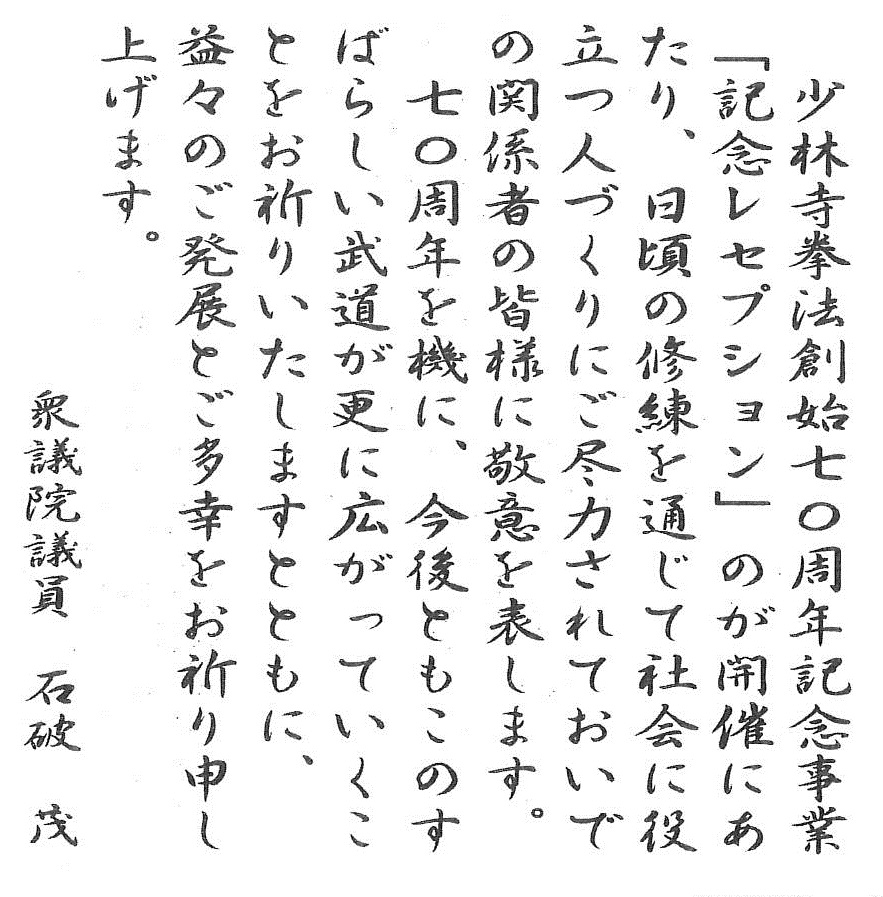 少林寺拳法創始七〇周年記念事業
「記念レセプション」のが開催にあ
たり、日頃の修練を通じて社会に役
立つ人づくりにご尽力されておいで
の関係者の皆様に敬意を表します。
七〇周年を機に、今後ともこのす
ばらしい武道が更に広がっていくこ
とをお祈りいたしますとともに、
益々のご発展とご多幸をお祈り申し
上げます。
衆議院議員　石破　茂